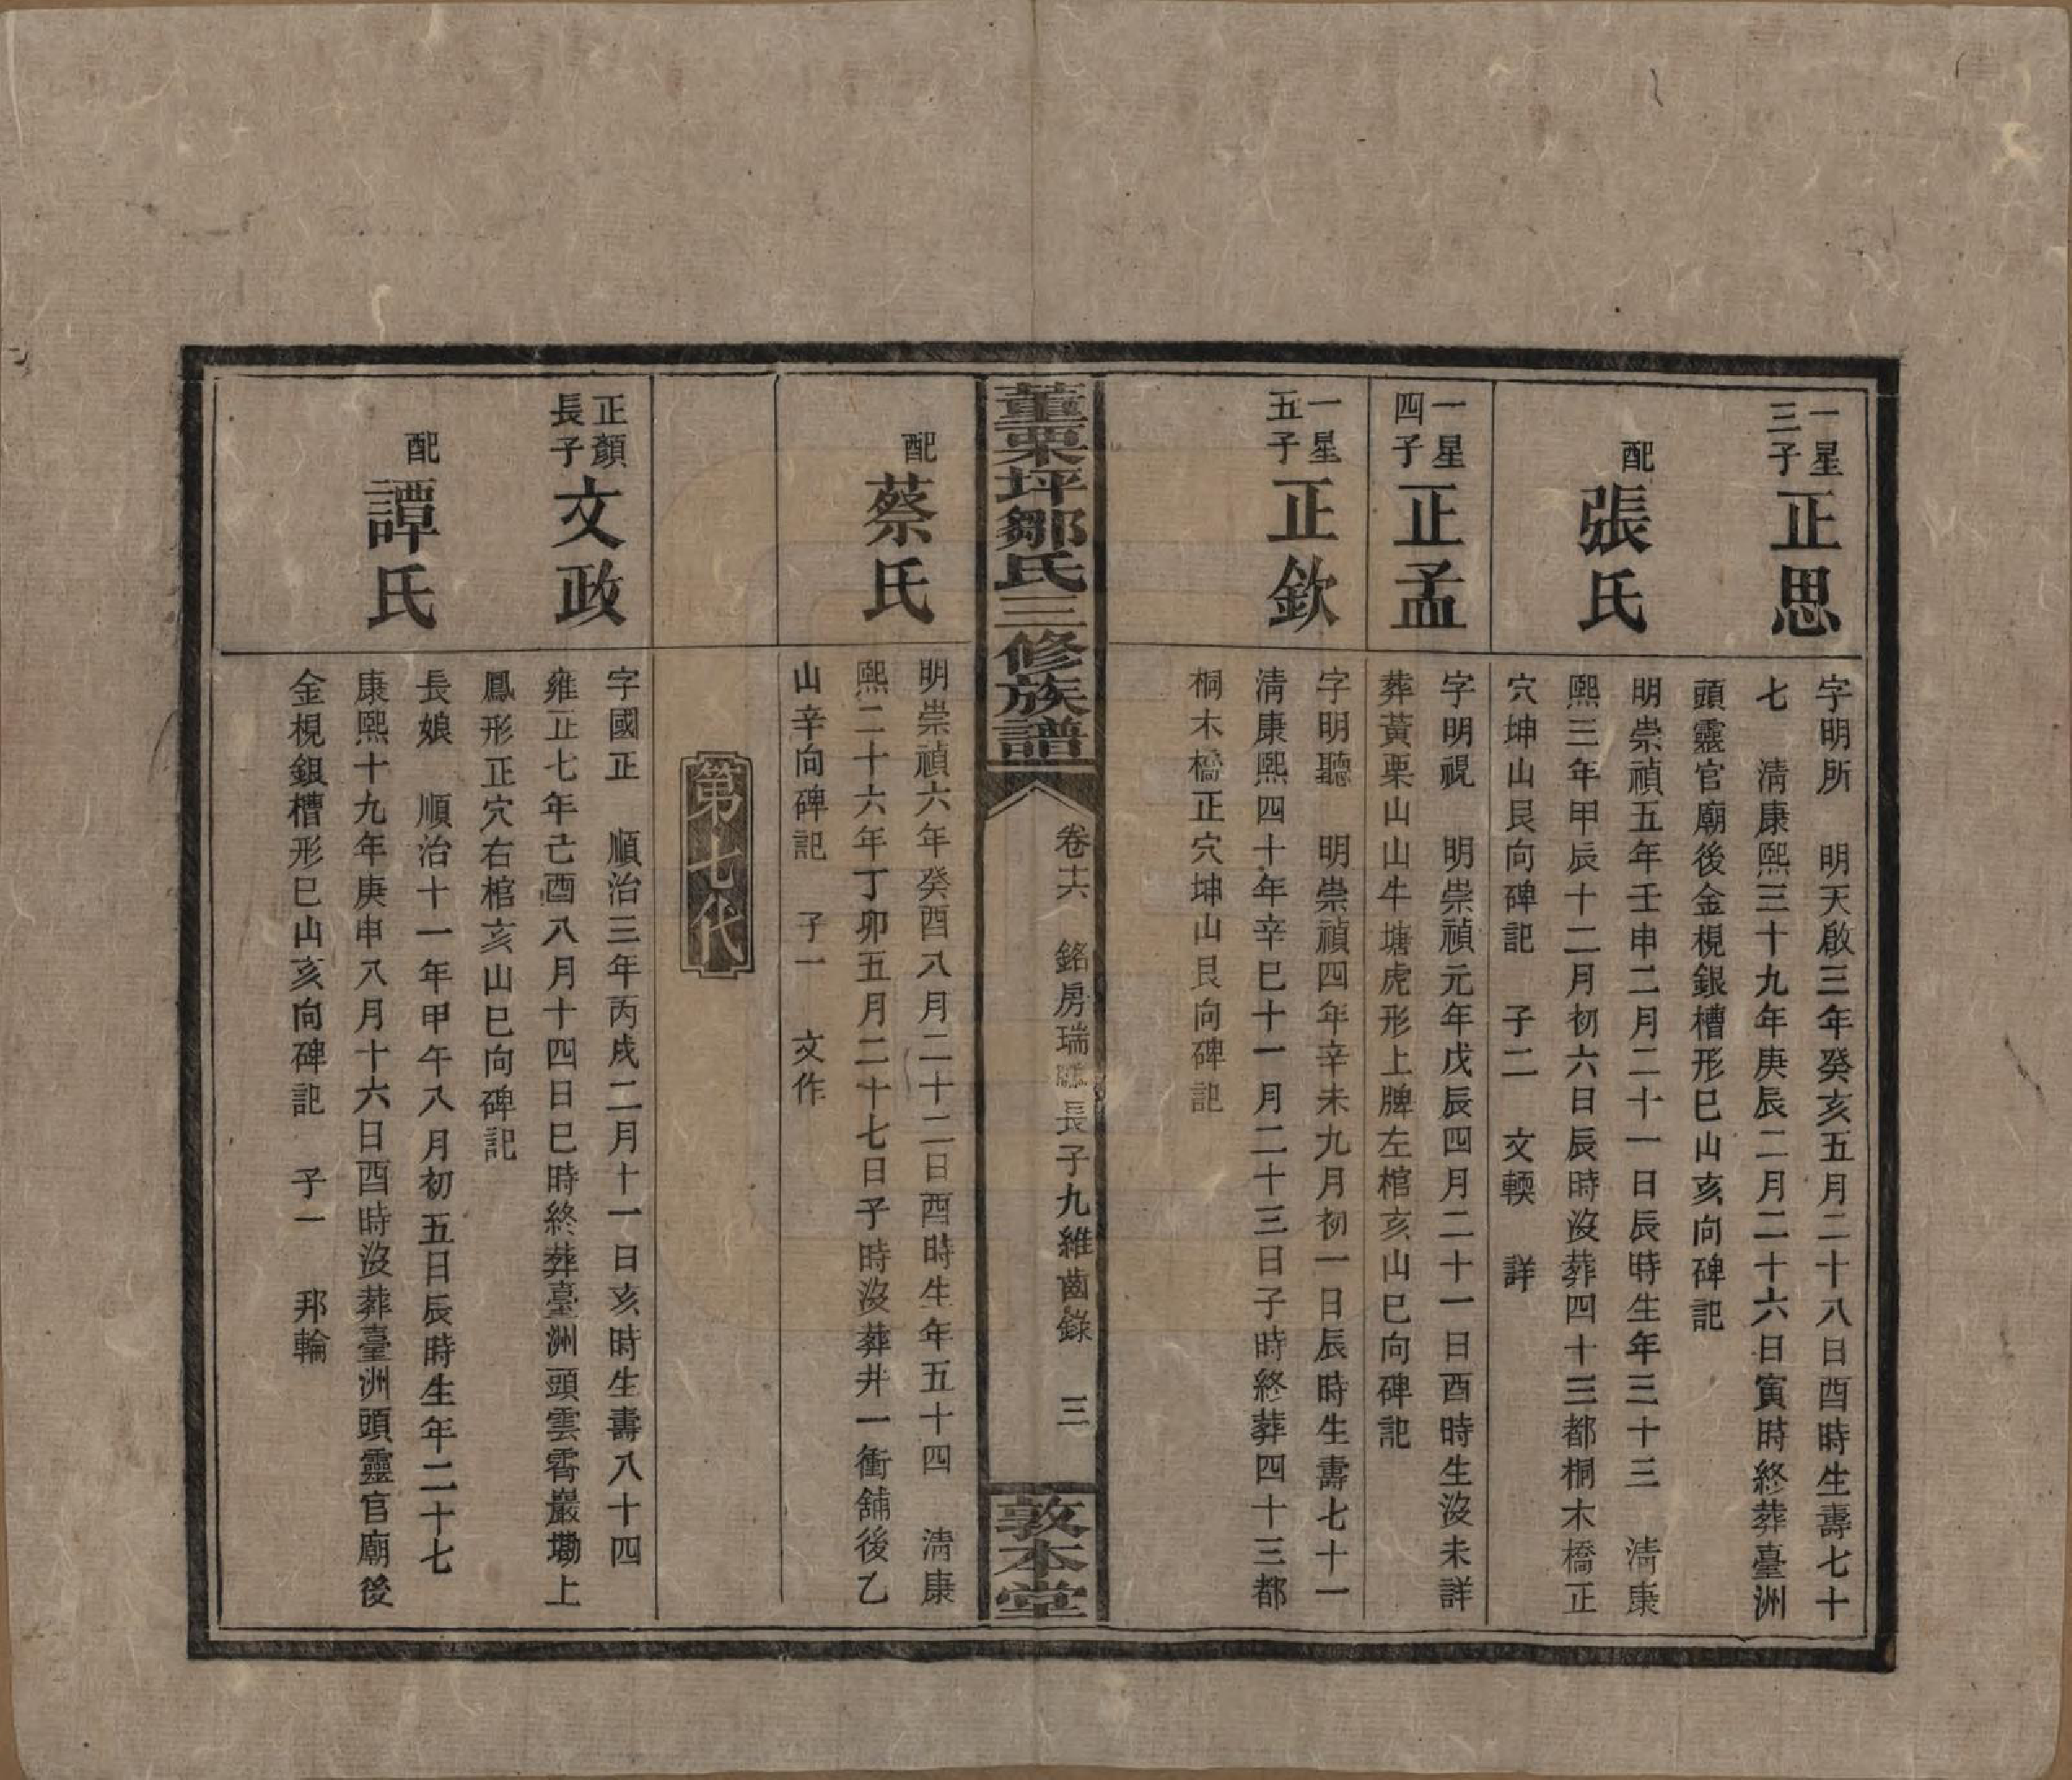 一星
三子
正思
字明所 明天啟三年癸亥五月二十八日酉時生壽七十
七 清康熙三十九年庚辰二月二十六日寅時終葬臺洲
頭靈官廟後金梘銀槽形巳山亥向碑記
配
張氏
明崇禎五年壬申二月二十一日辰時生年三十三 清康
熙三年甲辰十二月初六日辰時沒葬四十三都桐木橋正
穴坤山艮向碑記 子二 文輭 詳
一星
四子
正孟
字明視 明崇禎元年戊辰四月二十一日酉時生沒未詳
葬黃栗山山牛塘虎形上牌左棺亥山巳向碑記
一星
五子
正欽
字明聽 明崇禎四年辛未九月初一日辰時生壽七十一
清康熙四十年辛巳十一月二十三日子時終葬四十三都
桐木橋正穴坤山艮向碑記
董栗坪鄒氏三修族譜
卷十六 銘房瑞 長子九維齒錄 三
敦本堂
配
蔡氏
明崇禎六年癸酉八月二十二日酉時生年五十四 清康
熙二十六年丁卯五月二十七日子時沒葬井一衝舖後乙
山辛向碑記 子一 文作
第七代
正顏
長子
文政
字國正 順治三年丙戌二月十一日亥時生壽八十四
雍正七年己酉八月十四日巳時終葬臺洲頭雲霄巖墈上
鳳形正穴右棺亥山巳向碑記
配
譚氏
長娘 順治十一年甲午八月初五日辰時生年二十七
康熙十九年庚申八月十六日酉時沒葬臺洲頭靈官廟後
金梘銀槽形巳山亥向碑記 子一 邦輪